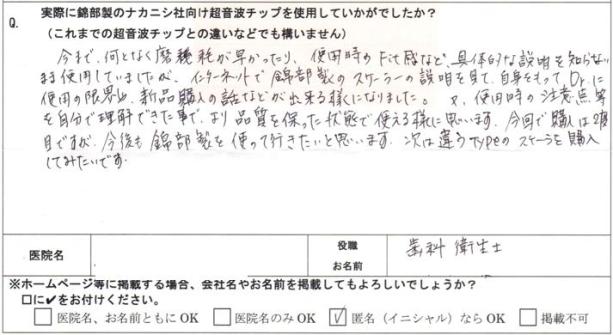 Q. 実際に錦部製のナカニシ社向け超音波チップを使用していかがでしたか?
(これまでの超音波チップとの違いなどでも構いません)
今まで、何となく磨耗が早かったり、使用時のFit感など、具体的な説明を知らない
まま使用していましたが、インターネットで錦部製のスケーラーの説明を見て、自身をもって、Dr.に
使用の限界や、新品購入の話などが出来る様になりました。又、使用時の注意点等
を自分で理解できた事で、より品質を保った状態で使える様に思います。今回で購入は2度
目ですが、今後も錦部製を使って行きたいと思います。次は違うTypeのスケーラを購入
してみたいです。
医院名
役職 歯科衛生士
お名前
※ホームページ等に掲載する場合、会社名やお名前を掲載してもよろしいでしょうか?
口に✔をお付けください。
□ 医院名、お名前ともにOK □ 医院名のみOK ☑ 匿名(イニシャル)ならOK □ 掲載不可